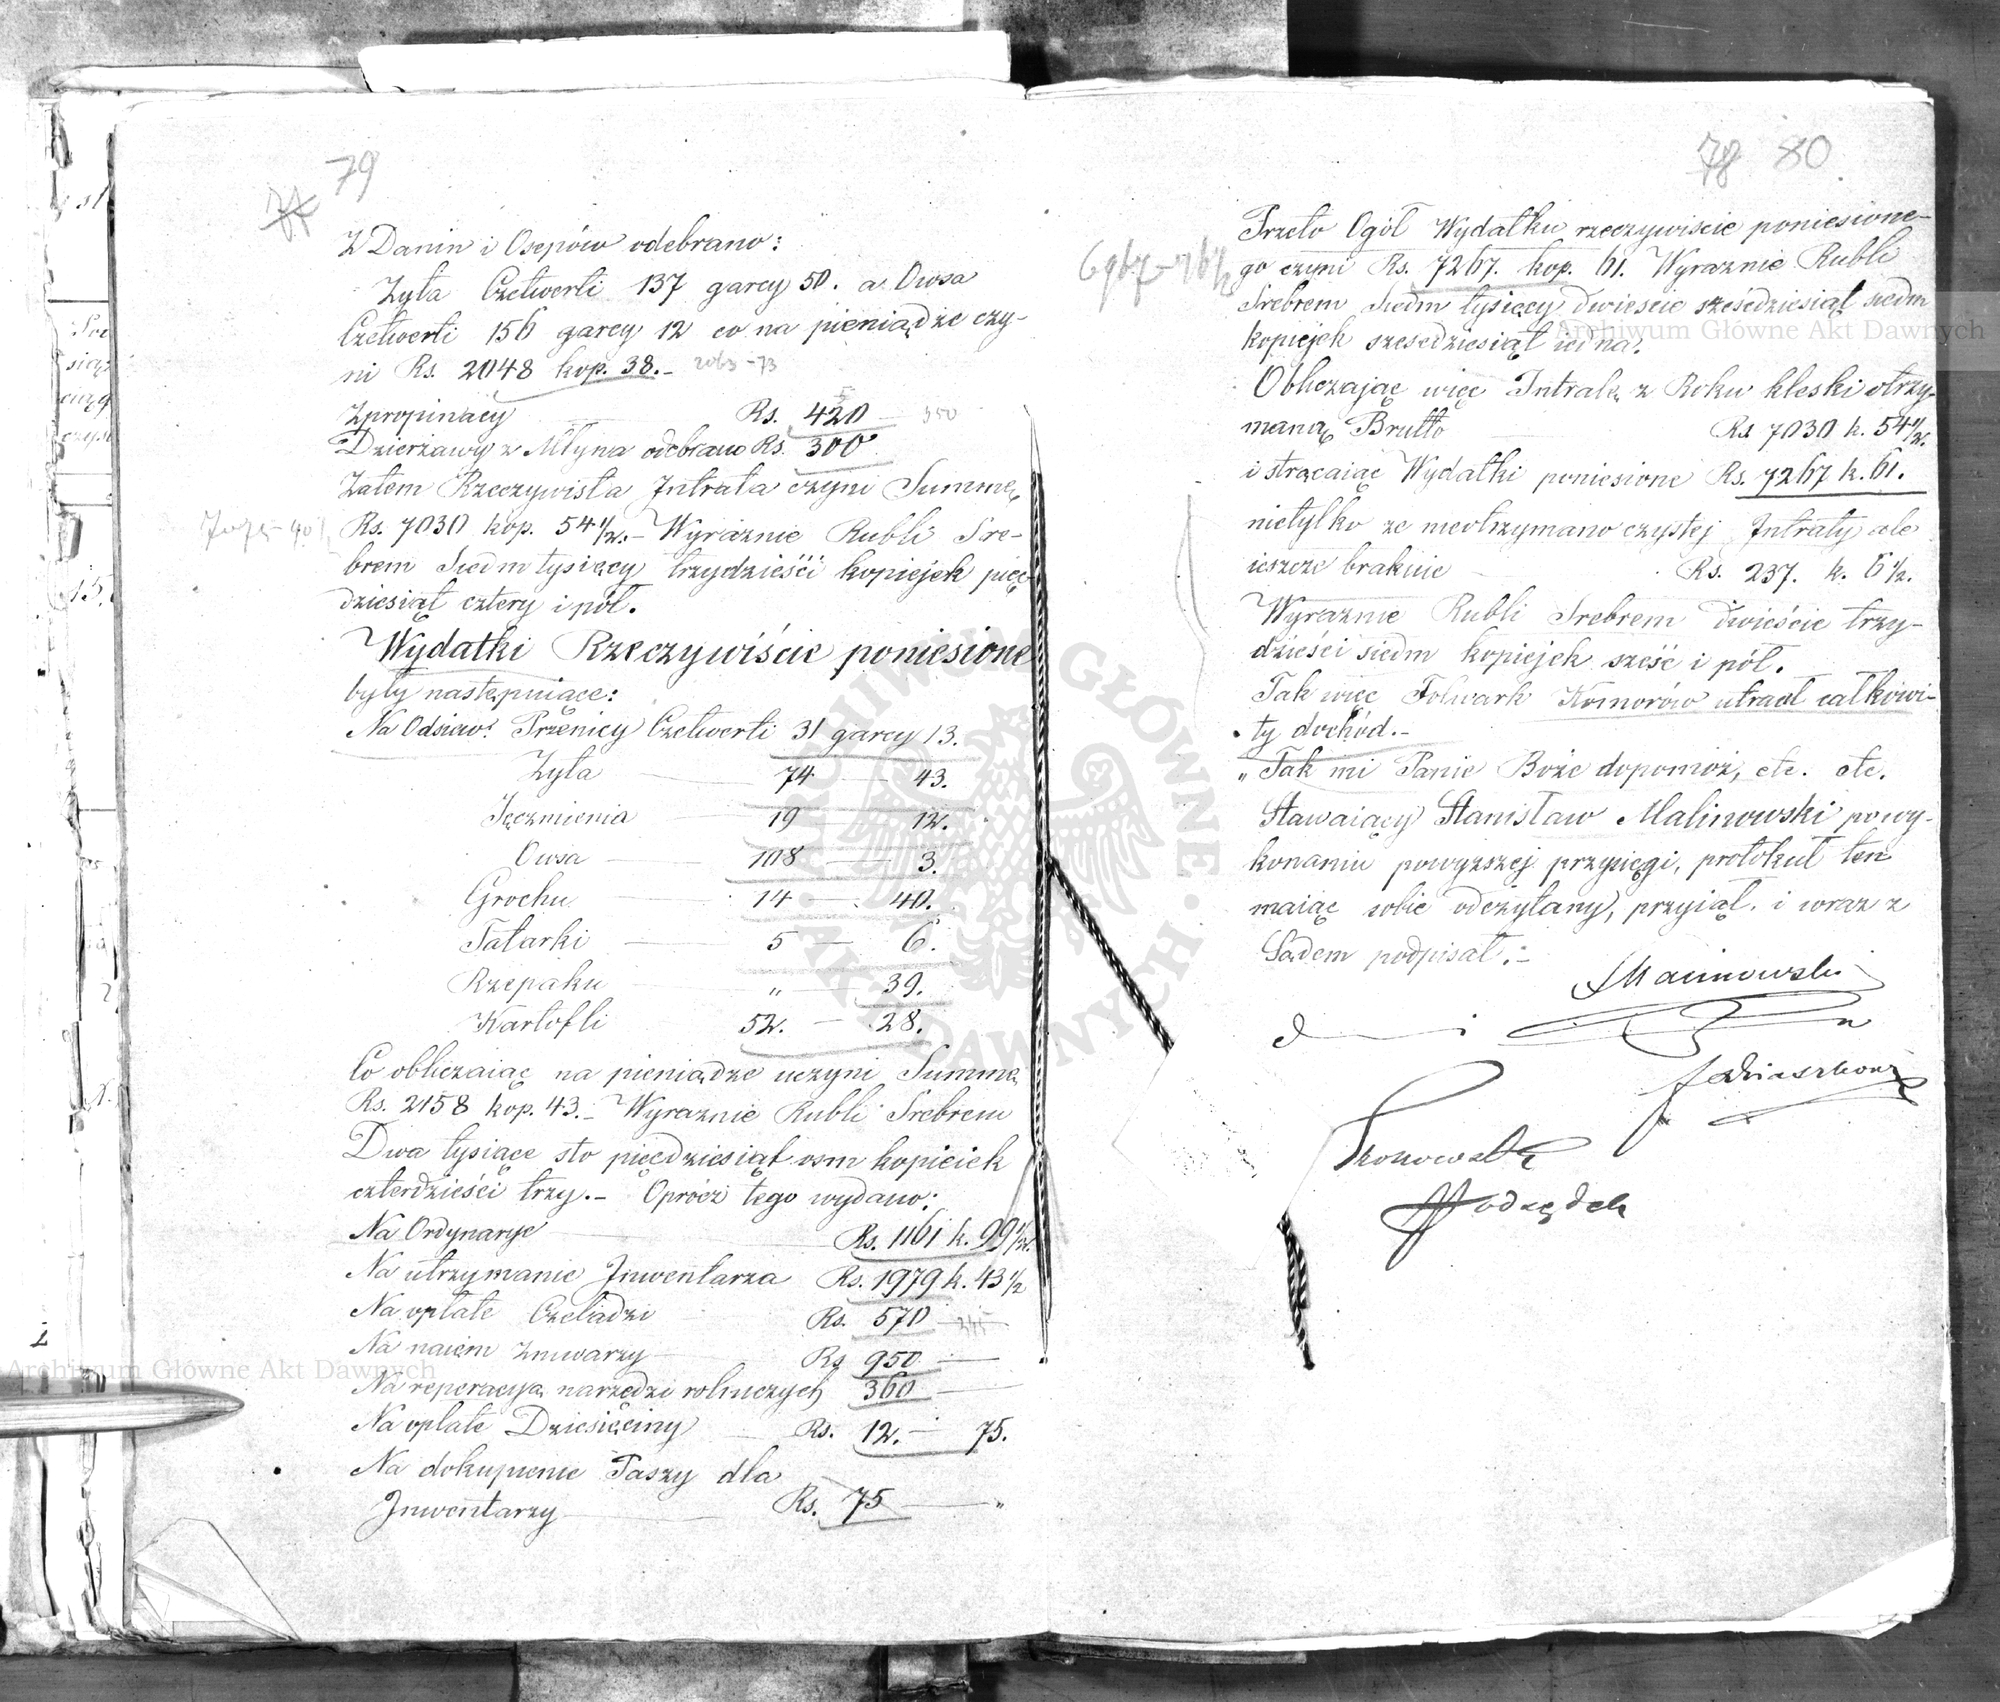 79
Z Danin i Osepów odebrano:
Żyta Czetwerti 137 garcy 50. a Owsa
Czetwerti 156 garcy 12 co na pieniądze czy-
ni Rs. 2048 kop. 38.- 2063-73
Z propinacyi Rs. 420 350
Dzierżawy z Młyna odebrano Rs. 300
Zatem Rzeczywista Intrata czyni Summę
Rs. 7030 kop. 54 1/2.- Wyraźnie Rubli Sre-
brem Siedm tysięcy trzydzieści kopiejek pięć
dziesiąt cztery i pół.
Wydatki Rzeczywiście poniesione
były następuiące:
Na Odsiew: Przenicy Czetwerti 31 garcy 13.
Żyta 74 43.
Jęczmienia 19 12.
Owsa 108 3.
Grochu 14 40.
Tatarki 5 6.
Rzepaku „ 39.
Kartofli 52. 28.
Co obliczaiąc na pieniądze uczyni Summę
Rs. 2158 kop. 43.- Wyraźnie Rubli Srebrem
Dwa tysiące sto pięćdziesiąt osm kopieiek
czterdzieści trzy.- Oprócz tego wydano:
Na Ordynarye Rs. 1161 k. 99 1/2.
Na utrzymanie Inwentarza Rs. 1979 k. 43 1/2
Na opłatę Czeladzi Rs. 570
Na naiem żniwarzy Rs 950
Na reperacyą narzędzi rolniczych 360
Na opłatę Dziesięciny Rs. 12. 75.
Na dokupienie Paszy dla
Inwentarzy Rs. 75 „
78 80
Przeto Ogół Wydatku rzeczywiście poniesione-
go czyni Rs. 7267. kop. 61. Wyraźnie Rubli
Srebrem siedm tysięcy dwieście sześćdziesiąt siedm
kopiejek sześćdziesiąt iedna.
Obliczając więc Intratę z Roku klęski otrzy-
maną Brutto Rs 7030 k. 54 1/2.
i strącaiąc Wydatki poniesione Rs. 7267 k. 61.
nietylko że nieotrzymano czystej Intraty ale
ieszcze brakuie Rs. 237. k. 6 1/2.
Wyraźnie Rubli Srebrem dwieście trzy-
dzieści siedm kopiejek sześć i pół.
Tak więc Folwark Komorów utracił całkowi-
ty dochód.-
„Tak mi Panie Boże dopomóż, etc. etc.
Stawaiący Stanisław Malinowski po wy-
konaniu powyższej przysięgi, protokuł ten
maiąc sobie odczytany, przyiął i wraz z
Sądem podpisał.-
SMalinowski
Archiwum Główne Akt Dawnych
Archiwum Główne Akt Dawnych
ARCHIWUM GŁÓWNE AKT DAWNYCH